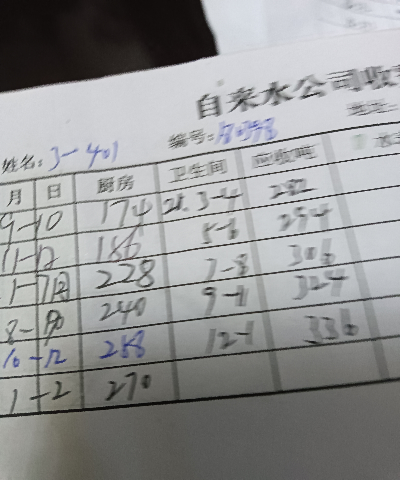 自来水公司收
姓名: 3-401 编号: 地址:
月 日 厨房 卫生间 应收吨 水
9-10 174 2. 3-4 282
11-12 186 5-6 294
1-7 228 7-8 306
8- 240 9-11 324
10-12 258 12-1 336
1-2 270